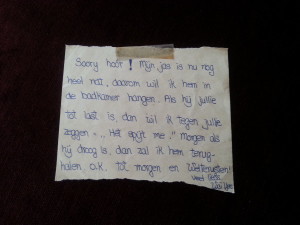 Soory hoor! Mijn jas is nu nog
heel nat, daarom wil ik hem in
de badkamer hangen. Als hij jullie
tot last is dan wil ik tegen jullie
zeggen "... Het spijt me." Morgen als
hij droog is, dan zal ik hem terug-
halen, o.k. tot morgen en Welterusten!